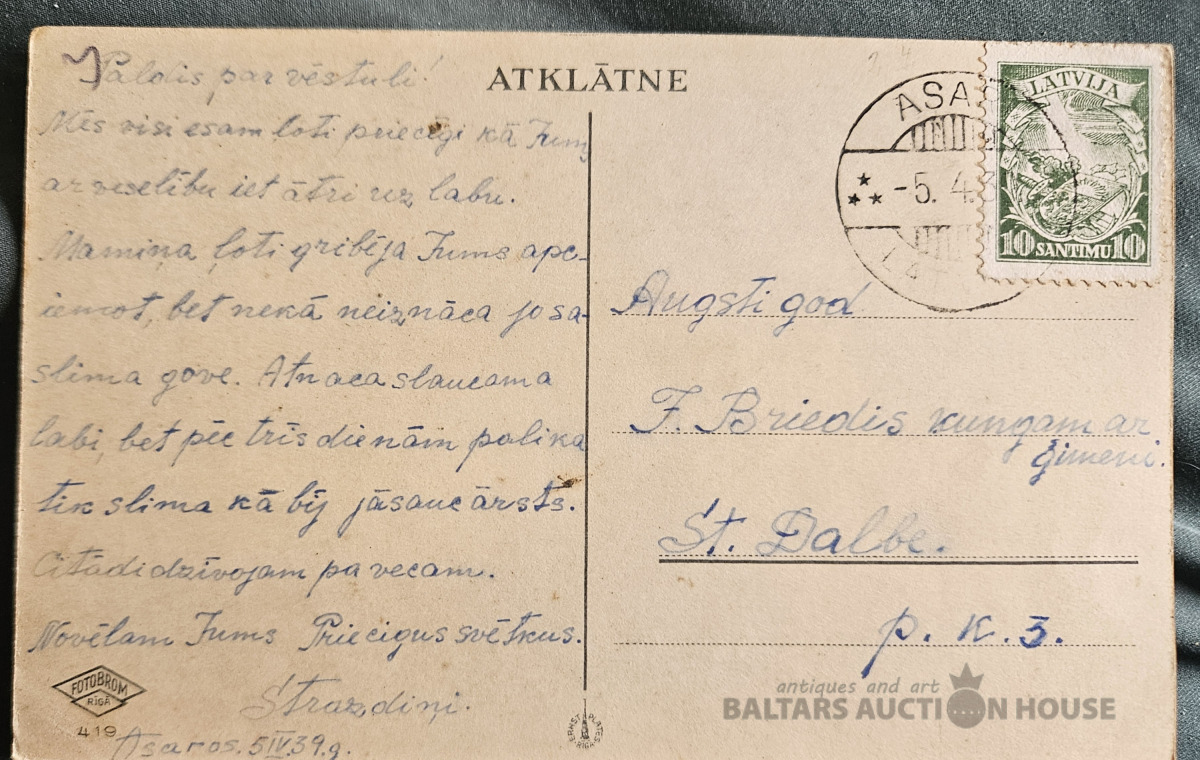 Paldis par vēstuli!
Mēs visi esam ļoti priecīgi kā Jums
ar veselību iet ātri uz labu.
Mamiņa ļoti gribēja Jums apc-
iemot, bet nekā neiznāca jo sa-
slima govs. Atnaca slaucama
labi, bet pēc trīs dienām palika
tik slima kā bij jāsauc ārsts.
Citādi dzīvojam pa vecam.
Novēlam Jums Priecigus svētkus.
Strazdiņi.
Asaros. 5IV.39.g.
FOTOBROM
RĪGĀ
419
ATKLĀTNE
ERNST PLATES
RĪGĀ
ASA
-5. 4.3
LATVIJA
10 SANTIMU 10
Augsti god
F. Briedis kungam ar
ģimeni.
St. Dalbe.
p. k. 3.
antiques and art
BALTARS AUCTION HOUSE